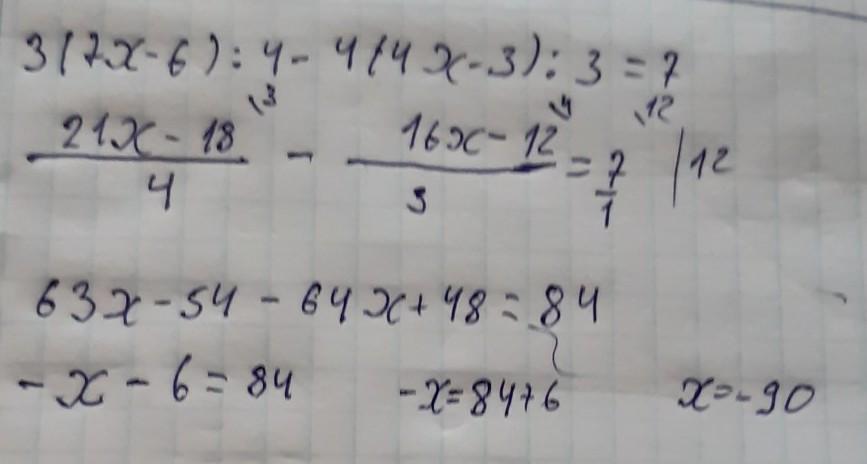 3(7x-6):4-4(4x-3):3=7
21x-18 \3 / 4 - 16x-12 \4 / 3 = 7 \12 / 1 |12
63x-54-64x+48=84
-x-6=84 -x=84+6 x=-90